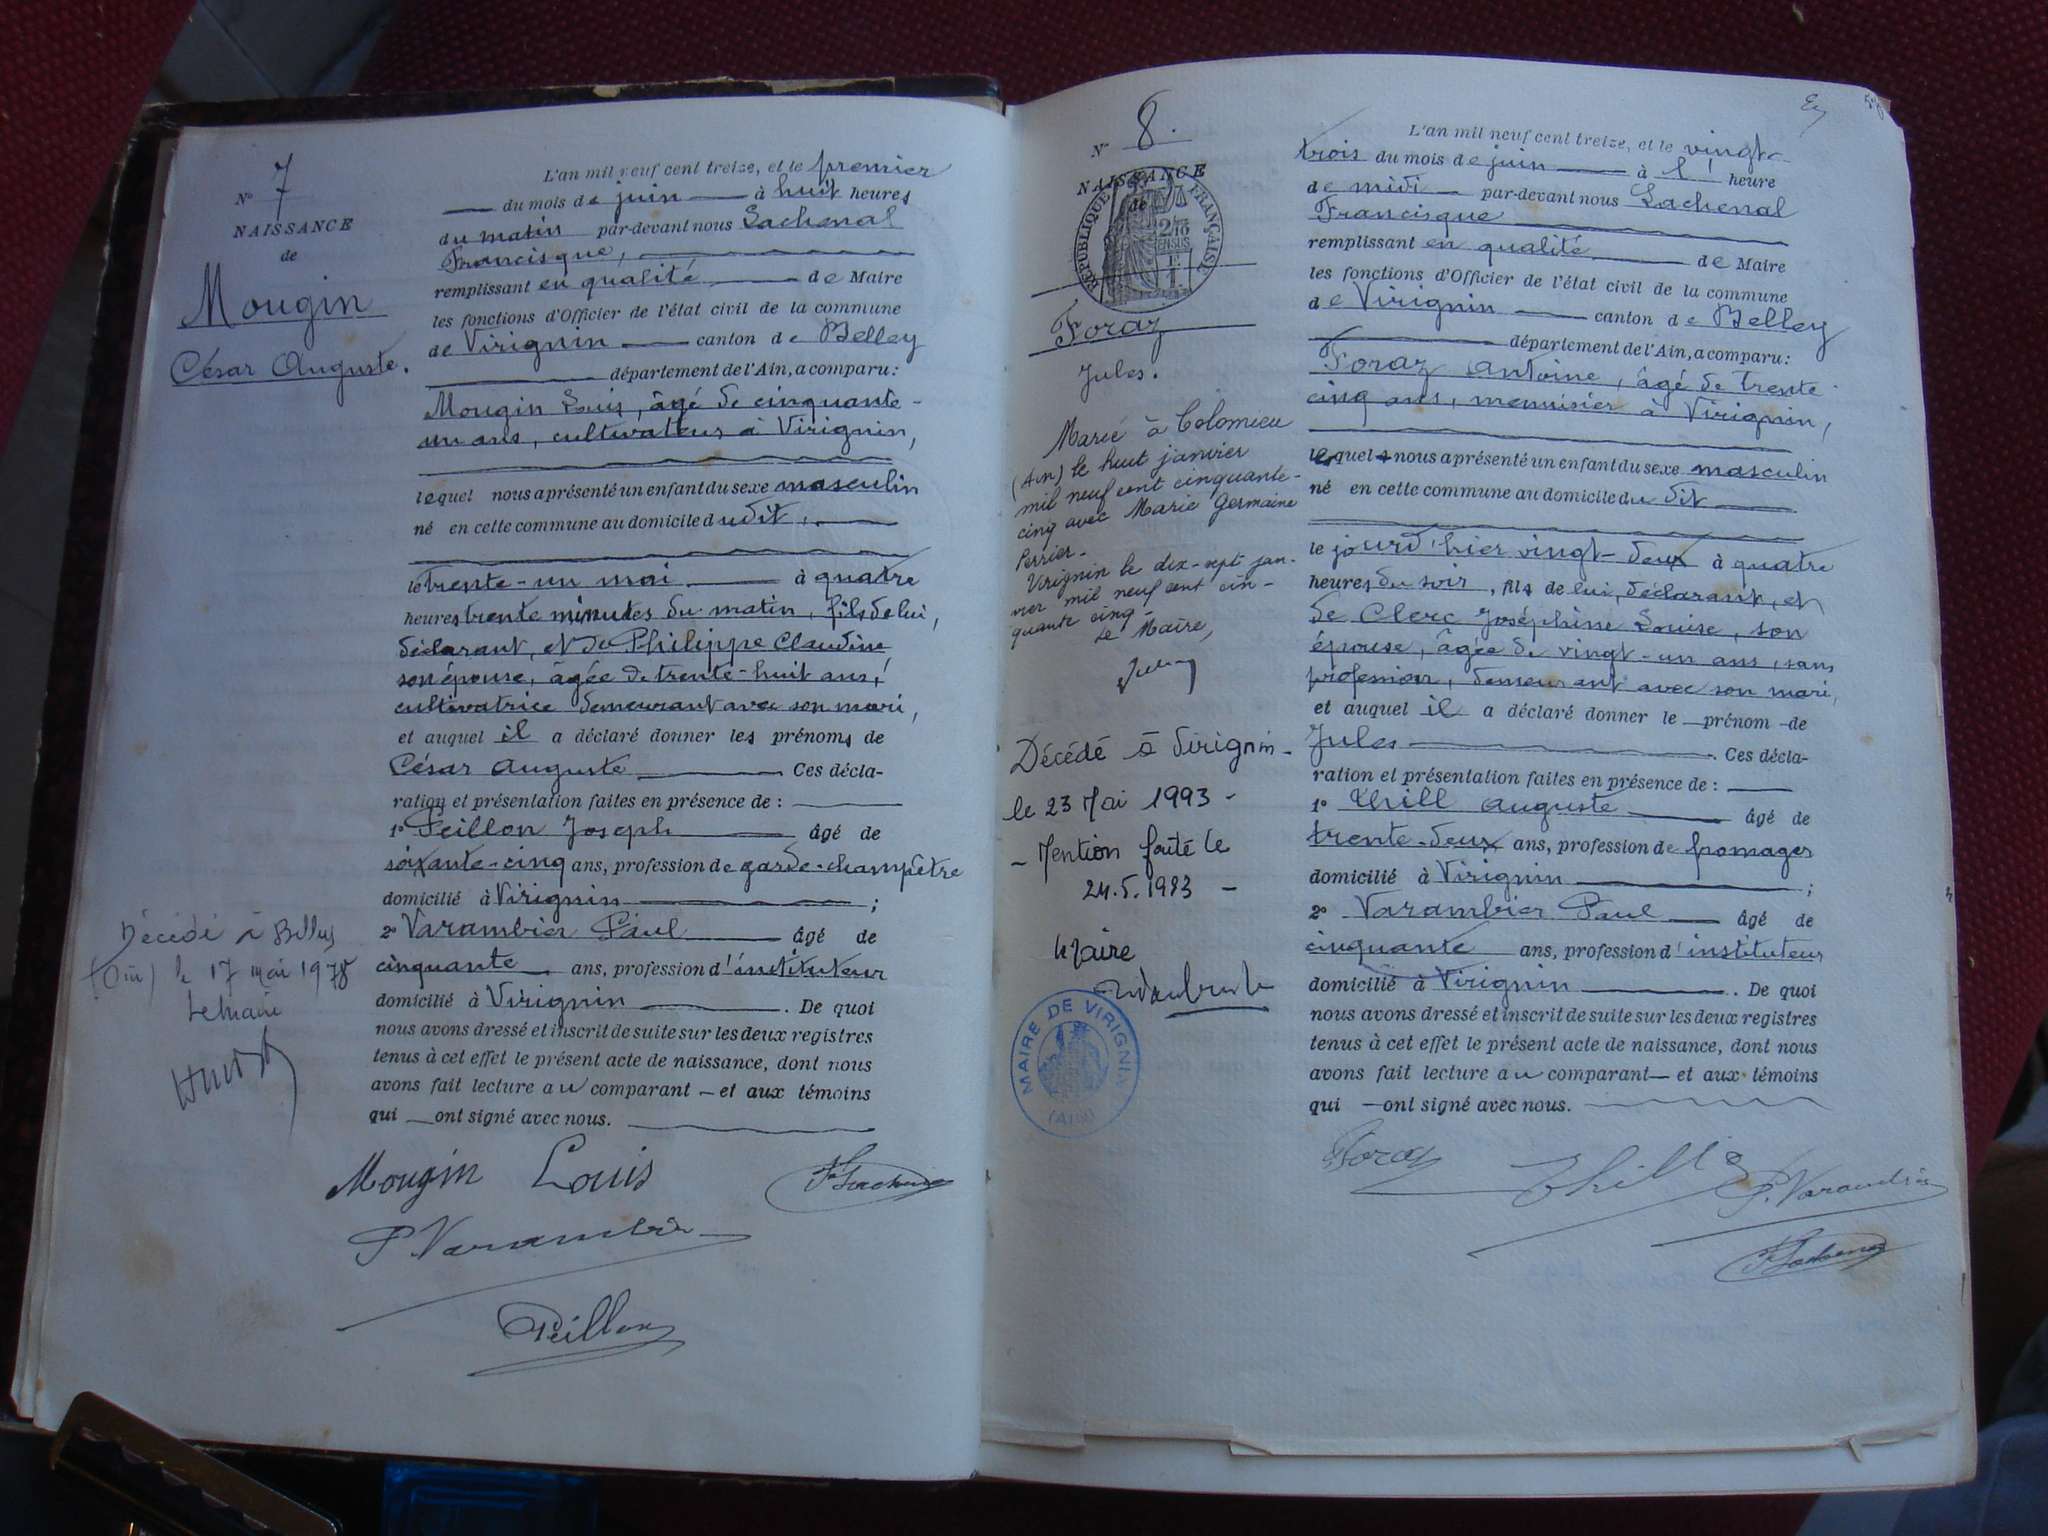 N° 7
NAISSANCE
de
Mougin
César Auguste.
L'an mil neuf cent treize, et le premier
du mois de juin à huit heures
du matin par-devant nous Lachenal
Francisque,
remplissant en qualité de Maire
les fonctions d'Officier de l'état civil de la commune
de Virignin canton de Belley
département de l'Ain, a comparu :
Mougin Louis, âgé de cinquante-
un ans, cultivateur à Virignin,
lequel nous a présenté un enfant du sexe masculin
né en cette commune au domicile dudit,
le trente-un mai à quatre
heures trente minutes du matin, fils de lui,
déclarant, et de Philippe Claudine
son épouse, âgée de trente-huit ans,
cultivatrice demeurant avec son mari,
et auquel il a déclaré donner les prénoms de
César Auguste Ces décla-
ration et présentation faites en présence de :
1° Peillon Joseph âgé de
soixante-cinq ans, profession de garde-champêtre
domicilié à Virignin ;
2° Varambier Paul âgé de
cinquante ans, profession d'instituteur
domicilié à Virignin . De quoi
nous avons dressé et inscrit de suite sur les deux registres
tenus à cet effet le présent acte de naissance, dont nous
avons fait lecture au comparant — et aux témoins
qui — ont signé avec nous.
Décédé à Belley
(Ain) le 17 mai 1978
Le Maire
Mougin Louis
F. Lachenal
P. Varambier
Peillon
N° 8.
NAISSANCE
de
RÉPUBLIQUE FRANÇAISE
2/10
EN SUS
1 F.
Foraz
Jules.
Marié à Colomieu
(Ain) le huit janvier
mil neuf cent cinquante-
cinq avec Marie Germaine
Perrier.
Virignin le dix-sept jan-
vier mil neuf cent cin-
quante cinq
Le Maire,
Décédé à Virignin
le 23 Mai 1993 -
- Mention faite le
24.5.1993 -
Le Maire
MAIRE DE VIRIGNIN
(AIN)
L'an mil neuf cent treize, et le vingt-
trois du mois de juin à l' heure
de midi par-devant nous Lachenal
Francisque
remplissant en qualité de Maire
les fonctions d'Officier de l'état civil de la commune
de Virignin canton de Belley
département de l'Ain, a comparu :
Foraz Antoine, âgé de trente
cinq ans, menuisier à Virignin,
lequel nous a présenté un enfant du sexe masculin
né en cette commune au domicile du dit
le jourd'hier vingt-deux à quatre
heures du soir, fils de lui, déclarant, et
de Clerc Joséphine Louise, son
épouse, âgée de vingt-un ans, sans
profession, demeurant avec son mari,
et auquel il a déclaré donner le — prénom — de
Jules . Ces décla-
ration et présentation faites en présence de :
1° Thill Auguste âgé de
trente-deux ans, profession de fromager
domicilié à Virignin ;
2° Varambier Paul âgé de
cinquante ans, profession d'instituteur
domicilié à Virignin . De quoi
nous avons dressé et inscrit de suite sur les deux registres
tenus à cet effet le présent acte de naissance, dont nous
avons fait lecture au comparant — et aux témoins
qui — ont signé avec nous.
Foraz Thill P. Varambier
F. Lachenal